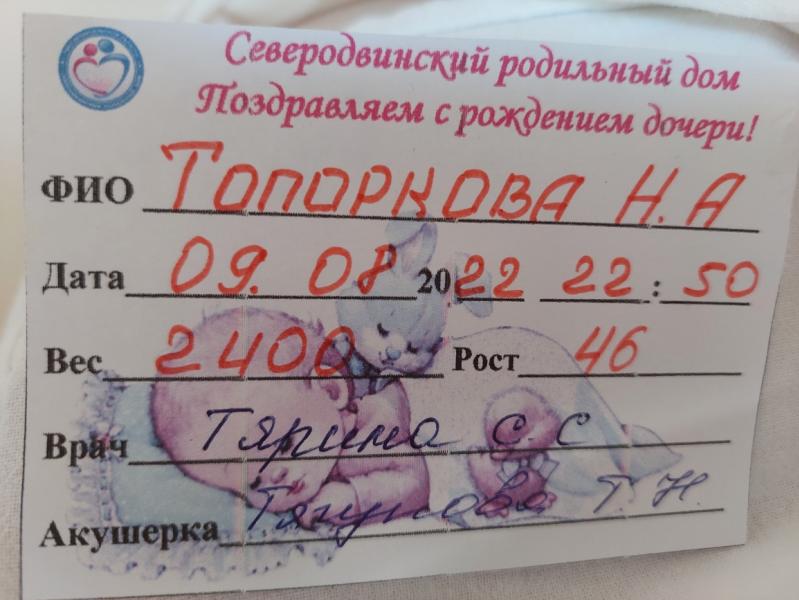 Северодвинский родильный дом
Поздравляем с рождением дочери!
ФИО ТОПОРКОВА Н. А
Дата 09. 08 2022 22 : 50
Вес 2400 Рост 46
Врач Тярина С. С
Акушерка Т. Н.